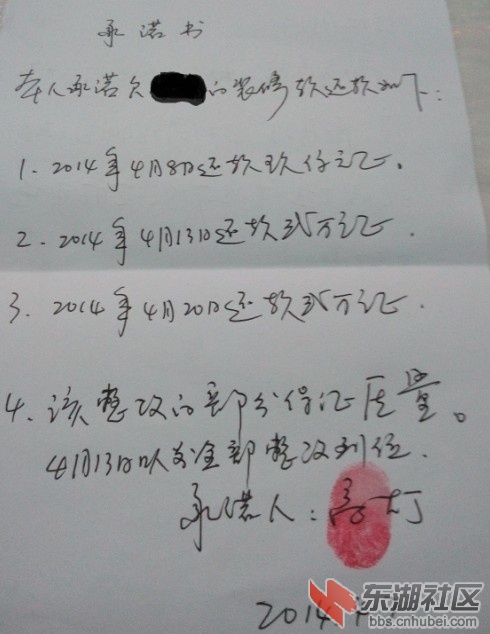 承诺书
本人承诺欠的装修款还款如下:
1. 2014年4月8日还款玖仟元正.
2. 2014年4月13日还款贰万元正.
3. 2014年4月20日还款贰万元正.
4. 该整改的部分保证质量。
4月13日以前全部整改到位.
承诺人:
2014.
东湖社区
bbs.cnhubei.com